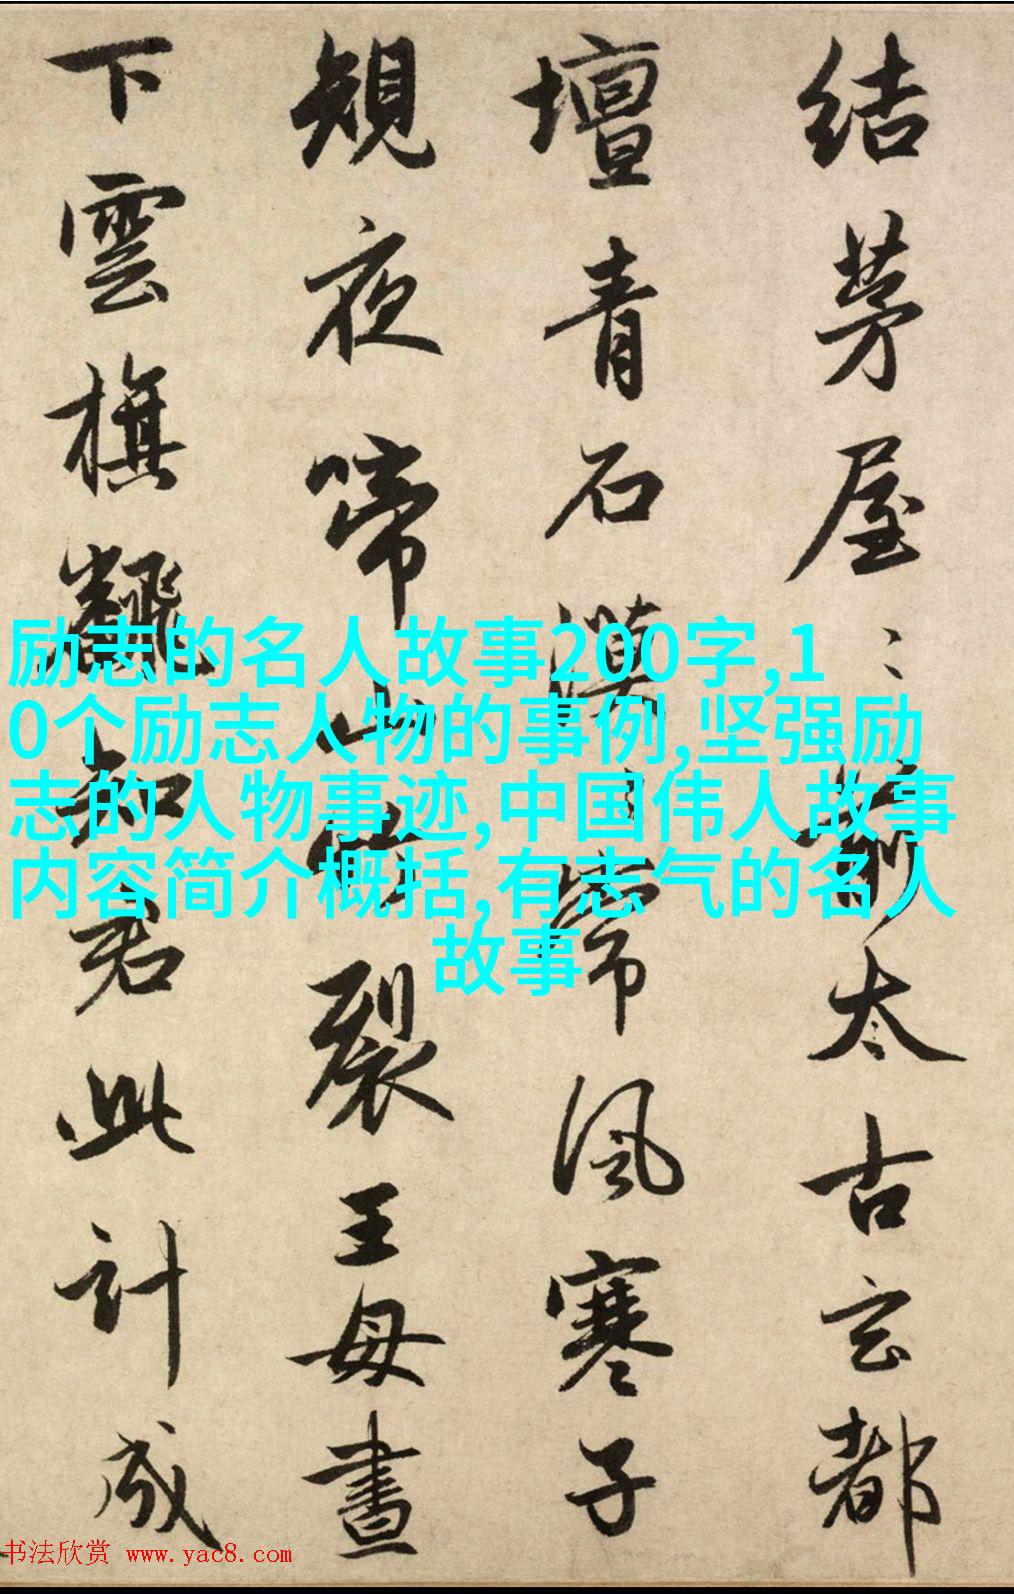 結茅屋〻前太古玄都
壇青石漠〻常風寒子
規夜啼山竹裂王母晝
下雲旗飜知君此計成
励志的名人故事200字,1
0个励志人物的事例,坚强励
志的人物事迹,中国伟人故事
内容简介概括,有志气的名人
故事
书法欣赏 www.yac8.com